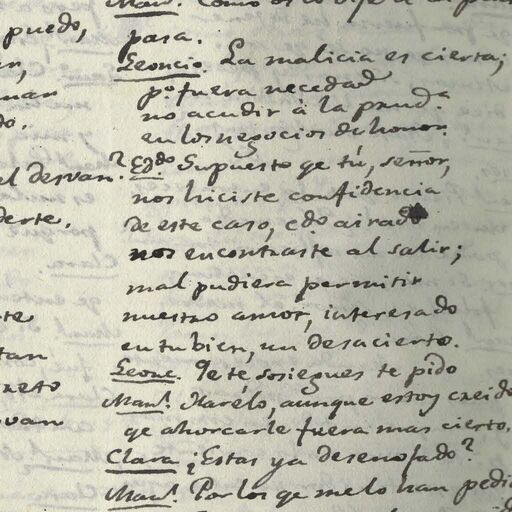 puedo,
el desvan?
derte,
tan
Man.l Como
pasa.
Leoncio. La malicia es cierta;
p.o fuera necedad
no acudir à la prud.a
en los negocios de honor.
Ed.do Supuesto qe tú, señor,
nos hiciste confidencia
de este caso, c.do airado
nos encontraste al salir;
mal pudiera permitir
nuestro amor, interesado
en tu bien, un desacierto.
Leonc. Qe té sosiegues te pido
Man.l Harélo, aunque estoy creido
qe ahorcarle fuera mas cierto.
Clara ¿Estas ya desenojado?
Man.l Por los qe me lo han pedi